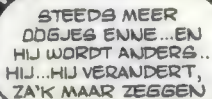 STEEDS MEER
OOGJES ENNE...EN
HIJ WORDT ANDERS..
HIJ...HIJ VERANDERT,
ZA'K MAAR ZEGGEN